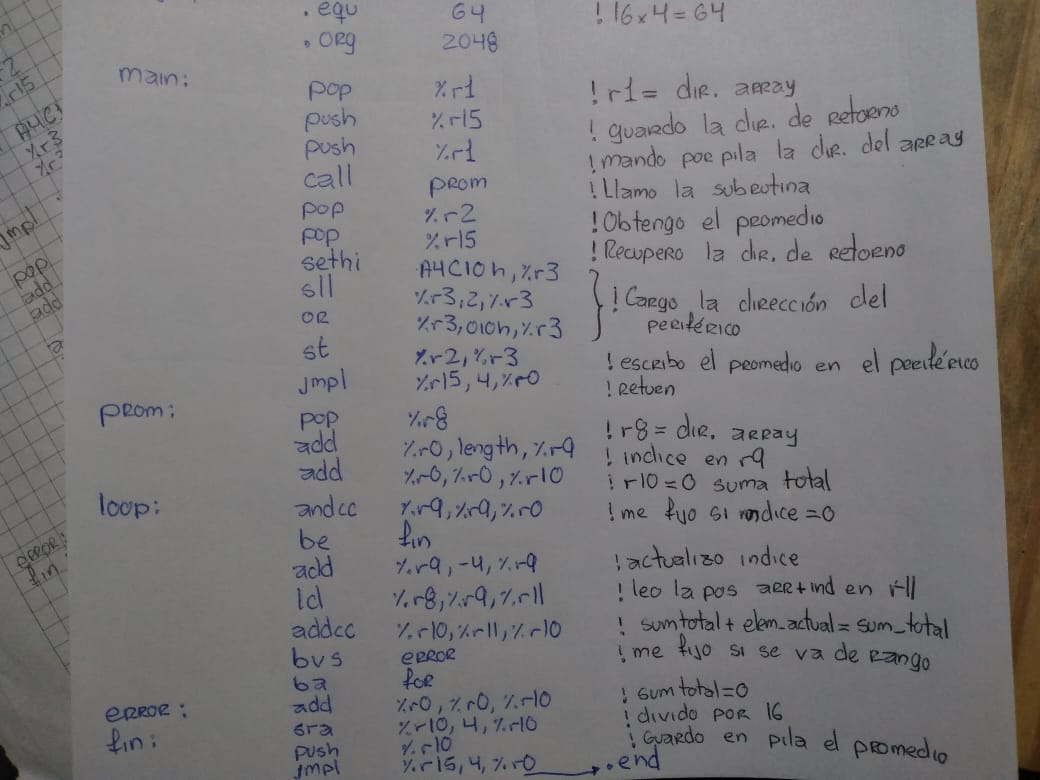 .equ 64 ! 16x4=64
.org 2048
main:
pop %r1 ! r1= dir. array
push %r15 ! guardo la dir. de retorno
push %r1 ! mando por pila la dir. del array
call prom ! Llamo la subrutina
pop %r2 ! Obtengo el promedio
pop %r15 ! Recupero la dir. de retorno
sethi A4C10h, %r3
sll %r3,2,%r3 ! Cargo la dirección del
or %r3,010h,%r3 periférico
st %r2,%r3 ! escribo el promedio en el periférico
jmpl %r15,4,%r0 ! retuen
prom:
pop %r8 ! r8= dir. array
add %r0, length, %r9 ! indice en r9
add %r0,%r0,%r10 ! r10=0 suma total
loop: andcc %r9,%r9,%r0 ! me fijo si indice=0
be fin
add %r9,-4,%r9 ! actualizo indice
ld %r8,%r9,%r11 ! leo la pos arr+ind en r11
addcc %r10,%r11,%r10 ! sumtotal+elem_actual=sum_total
bvs error ! me fijo si se va de rango
ba for
error: add %r0,%r0,%r10 ! sumtotal=0
fin: sra %r10,4,%r10 ! divido por 16
push %r10 ! Guardo en pila el promedio
jmpl %r15,4,%r0 .end
r2
%r15
A4C1
%r3
jmpl
pop
add
add
error:
fin